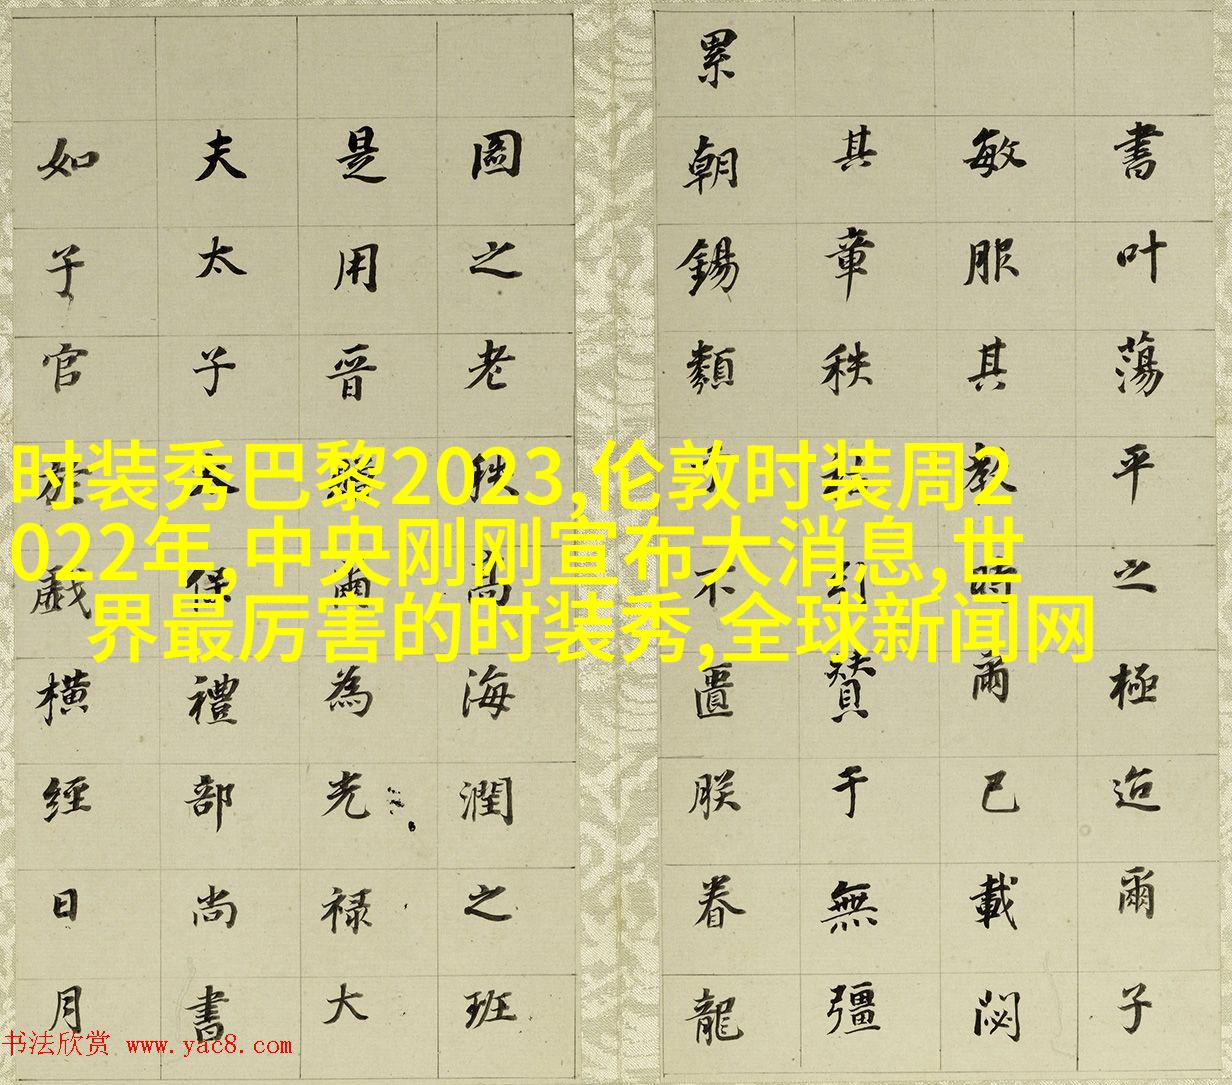 書叶蕩平之極迨爾子
敏服其教時爾已載閟
其章秩引贊于無彊
累朝錫類不匱朕眷龍
圖之老秩高海潤之班
是用晉爾為光禄大
夫太子太保禮部尚書
如子官於戲橫經日月
时装秀巴黎2023,伦敦时装周2
022年,中央刚刚宣布大消息,世
界最厉害的时装秀,全球新闻网
书法欣赏 www.yac8.com